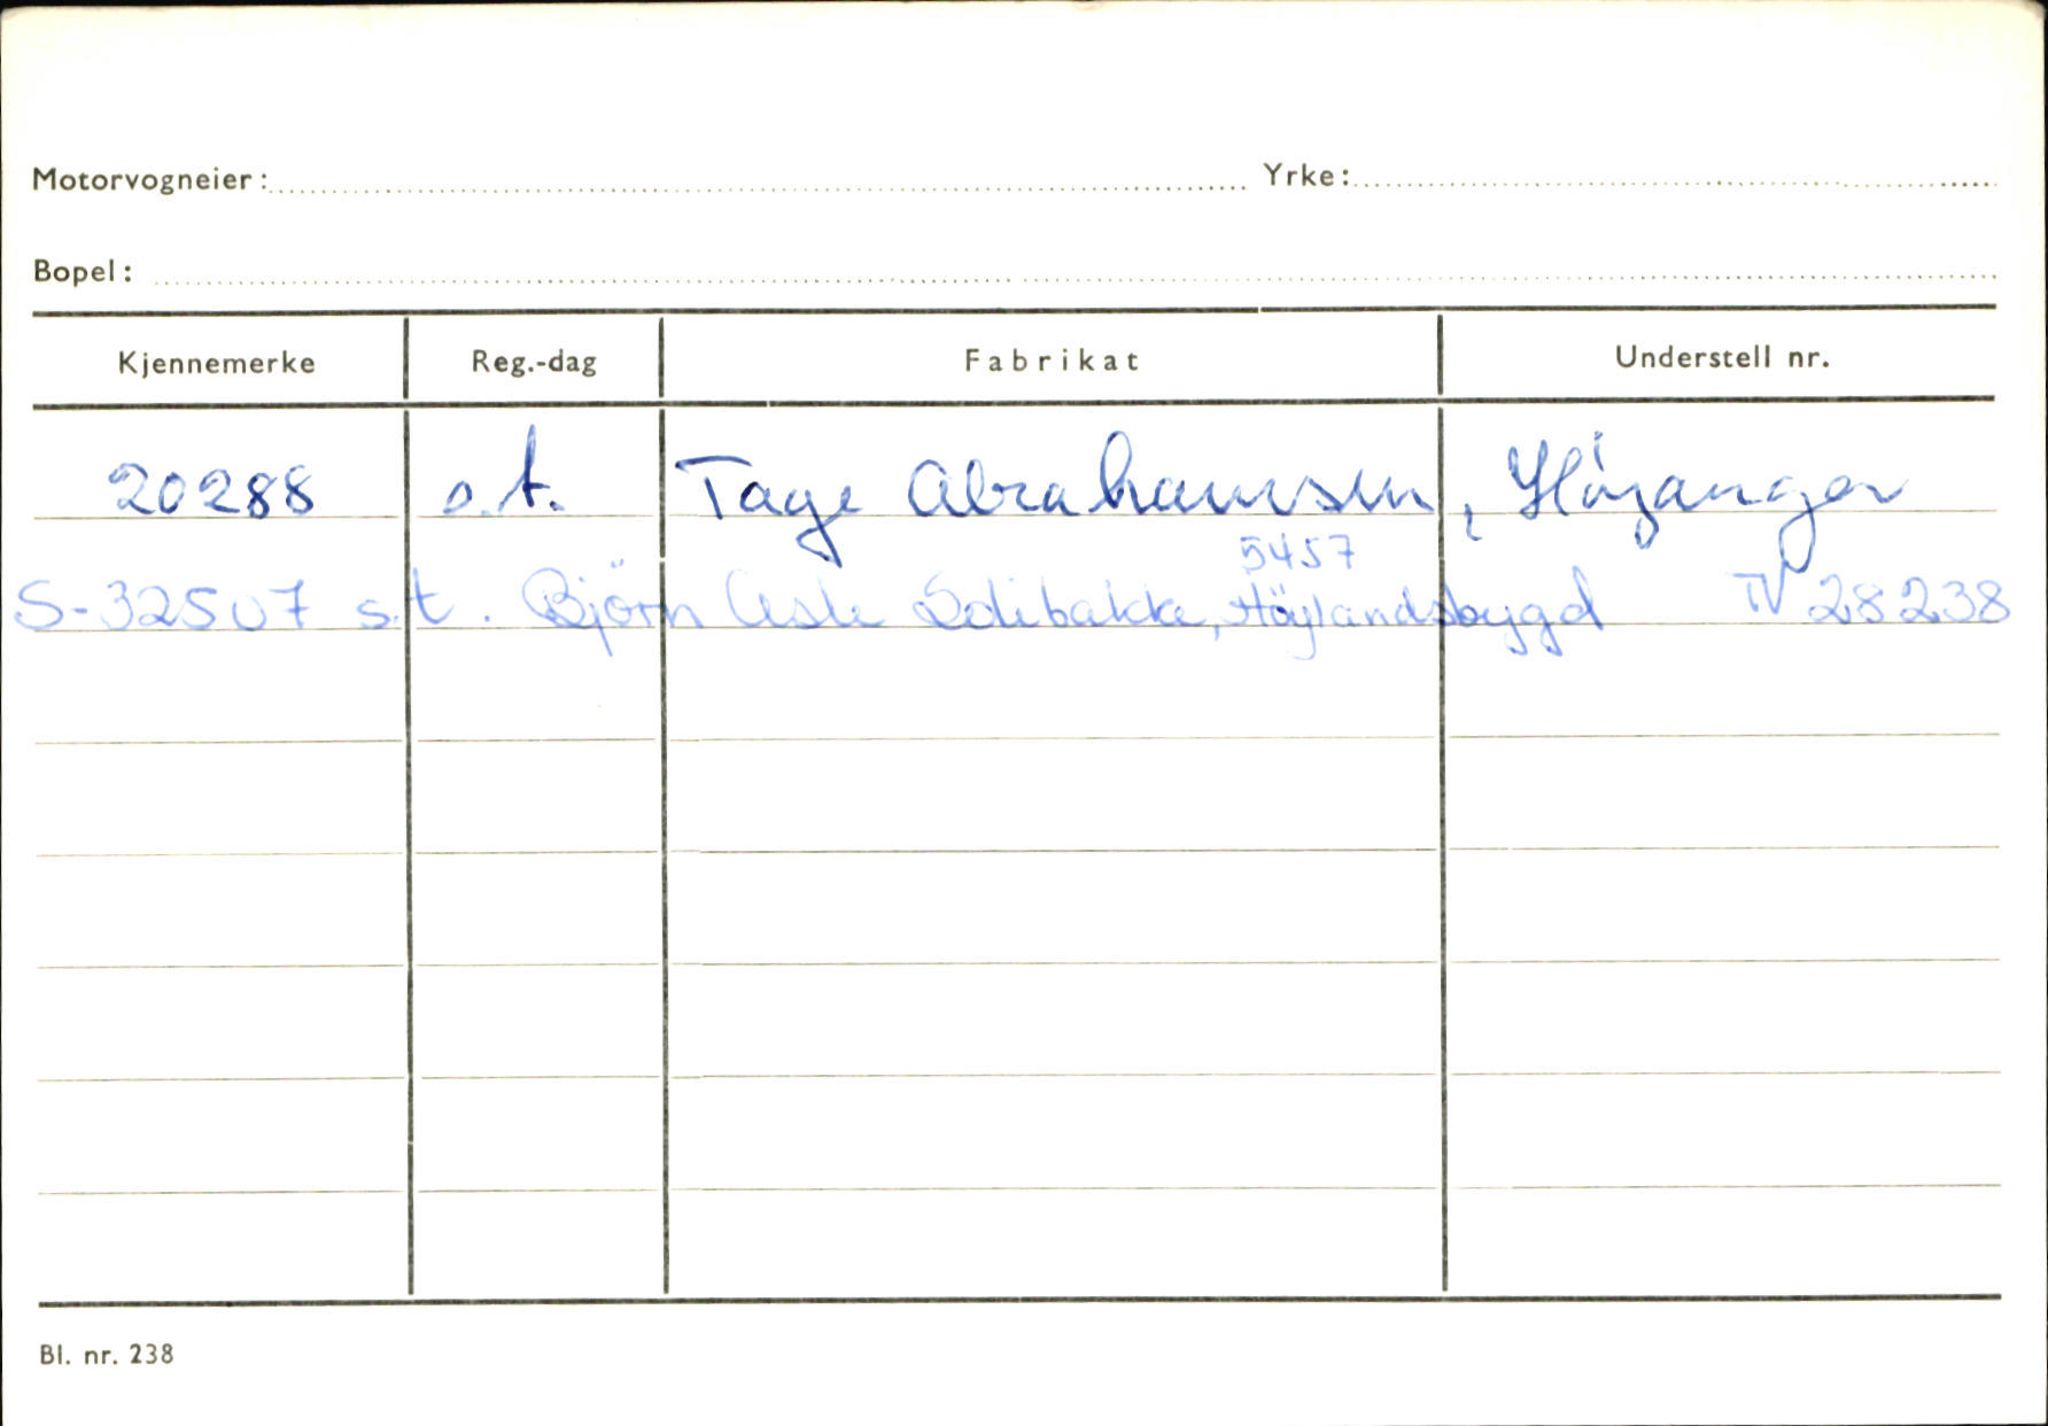 Motorvogneier: Yrke:
Bopel:
Kjennemerke Reg.-dag Fabrikat Understell nr.
20288 s.t. Tage Abrahamsen, Höyanger
5457
S-32507 s.t. Björn Asle Ödebakke, Höylandsbygd TV 28238
Bl. nr. 238